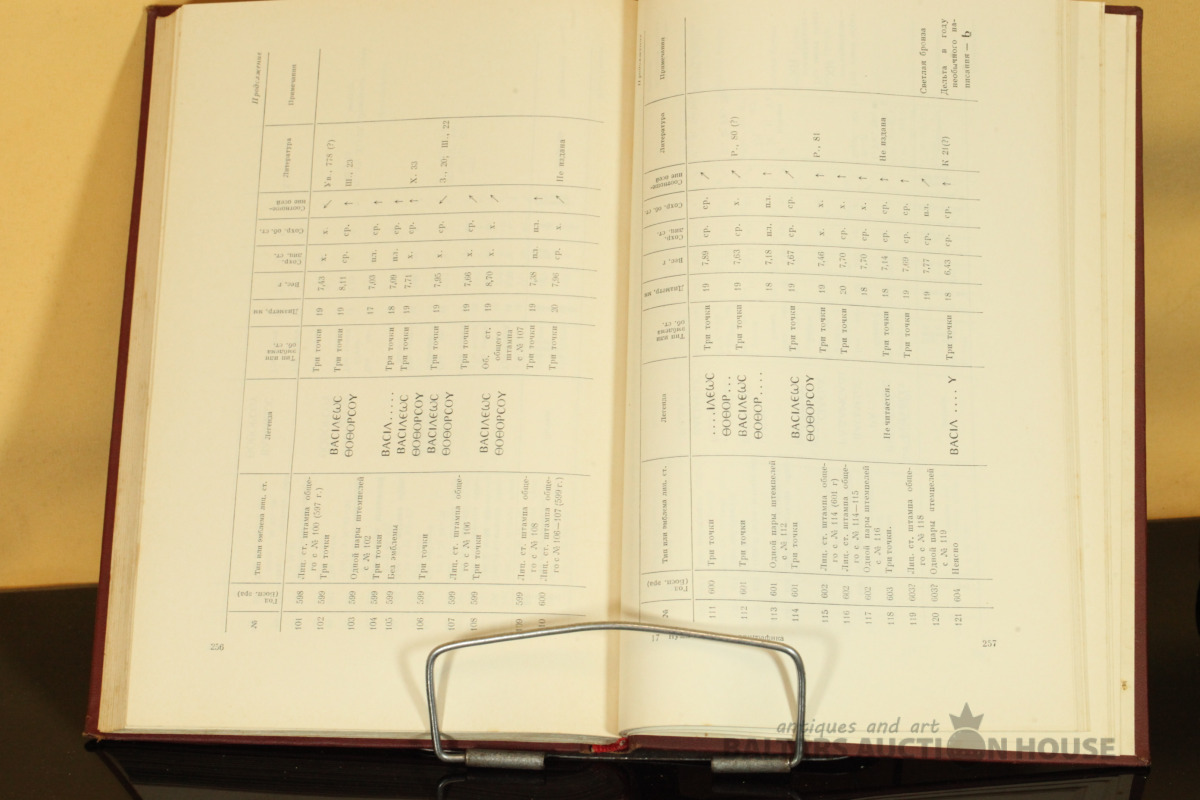 Продолжение
№
Год (Босп. эра)
Тип или эмблема лиц. ст.
Легенда
Тип или эмблема об. ст.
Диаметр, мм
Вес, г
Сохр. лиц. ст.
Сохр. об. ст.
Соотношение осей
Литература
Примечания
101 598 Лиц. ст. штампа общего с № 100 (597 г.) Три точки 19 7,43 х. х. ↖ Ув., 778 (?)
102 599 Три точки ΒΑCΙΛΕωC ΘΟΘΟΡCΟΥ Три точки 19 8,11 ср. ср. ↑ Ш., 23
103 599 Одной пары штемпелей с № 102 17 7,03 пл. ср. ↑
104 599 Три точки ΒΑCΙΛ..... Три точки 18 7,09 пл. ср. ↑
105 599 Без эмблемы ΒΑCΙΛΕωC ΘΟΘΟΡCΟΥ Три точки 19 7,71 х. ср. ↑ Х. 33
106 599 Три точки ΒΑCΙΛΕωC ΘΟΘΟΡCΟΥ Три точки 19 7,95 х. ср. ↖ З., 20; Ш., 22
107 599 Лиц. ст. штампа общего с № 106 Три точки 19 7,66 х. ср. ↗
108 599 Три точки ΒΑCΙΛΕωC ΘΟΘΟΡCΟΥ Об. ст. общего штампа с № 107 19 8,70 х. х. ↗
599 Лиц. ст. штампа общего с № 108 Три точки 19 пл. пл. ↑
10 600 Лиц. ст. штампа общего с № 106—107 (599 г.) Три точки 20 7,96 ср. х. ↗ Не издана
256
№
Год (Босп. эра)
Тип или эмблема лиц. ст.
Легенда
Тип или эмблема об. ст.
Диаметр, мм
Вес, г
Сохр. лиц. ст.
Сохр. об. ст.
Соотношение осей
Литература
Примечания
111 600 Три точки ....ΙΛΕωC ΘΟΘΟΡ... Три точки 19 7,89 ср. ср. ↗
112 601 Три точки ΒΑCΙΛΕωC ΘΟΘΟΡ.... Три точки 19 7,63 ср. х. ↗ Р., 80 (?)
113 601 Одной пары штемпелей с № 112 18 7,18 пл. пл. ↑
114 601 Три точки ΒΑCΙΛΕωC ΘΟΘΟΡCΟΥ Три точки 19 7,67 ср. ср. ↗
115 602 Лиц. ст. штампа общего с № 114 (601 г) Три точки 19 7,46 х. х. ↑ Р., 81
116 602 Лиц. ст. штампа общего с № 114—115 Три точки 20 7,70 ср. х. ↑
117 602 Одной пары штемпелей с № 116 18 7,70 ср. х. ↑
118 603 Три точки. Не читается. Три точки 18 7,14 ср. ср. ↑ Не издана
119 603? Лиц. ст. штампа общего с № 118 Три точки 19 7,69 ср. ср. ↑
120 603? Одной пары штемпелей с № 119 19 7,77 ср. пл. ↗ Светлая бронза
121 604 Неясно ΒΑCΙΛ .... Υ Три точки 18 6,43 ср. ср. ↑ К 21(?) Дельта в году необычного написания —
17
257
antiques and art
BALTERS AUCTION HOUSE